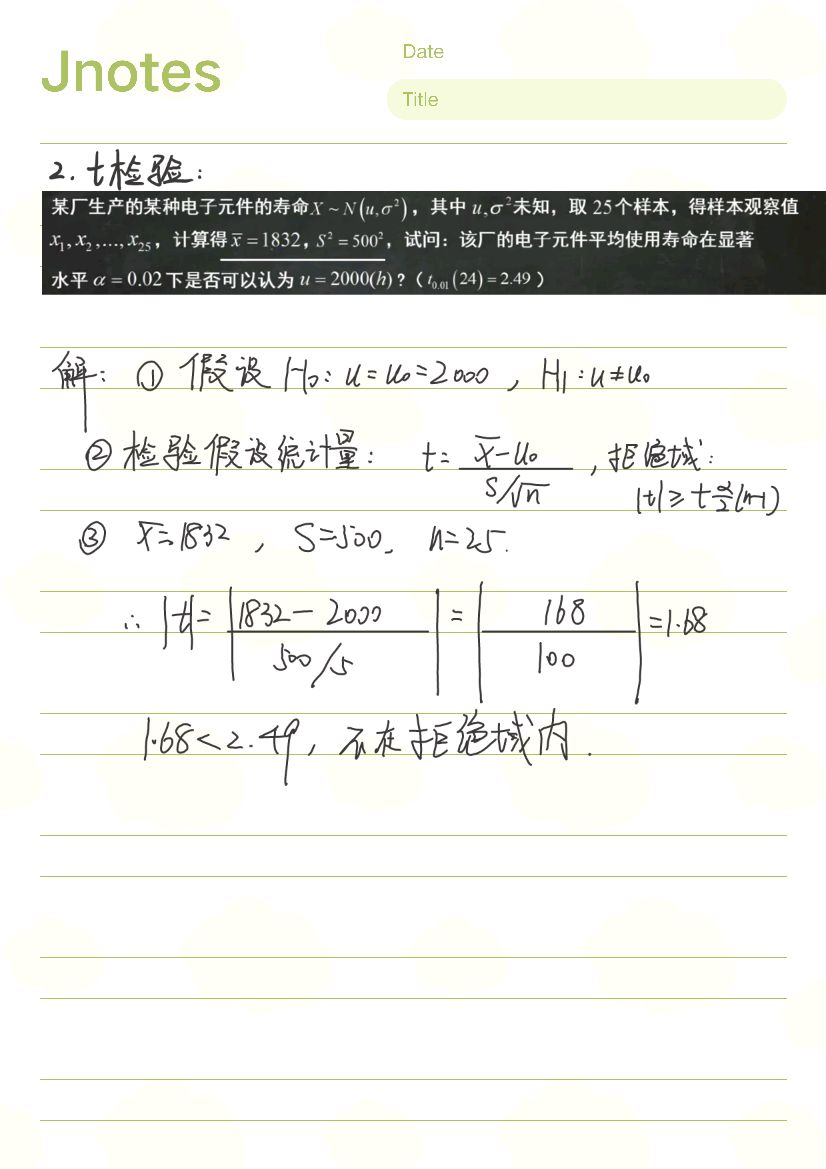 Jnotes
Date
Title
2. t检验:
某厂生产的某种电子元件的寿命X ~ N(u,σ²)，其中 u,σ²未知，取 25个样本，得样本观察值
x₁, x₂ ,..., x₂₅，计算得 x̄ = 1832，S² = 500²，试问：该厂的电子元件平均使用寿命在显著
水平 α = 0.02 下是否可以认为 u = 2000(h)？（ t₀.₀₁(24) = 2.49 ）
解: ① 假设 H₀: u = u₀ = 2000 , H₁: u ≠ u₀
② 检验假设统计量: t = (x̄ - u₀)/(S/√n) , 拒绝域:
|t| ≥ t α/2 (n-1)
③ x̄ = 1832 , S = 500, n = 25.
∴ |t| = |(1832 - 2000)/(500/5)| = |168/100| = 1.68
1.68 < 2.49, 不在拒绝域内.